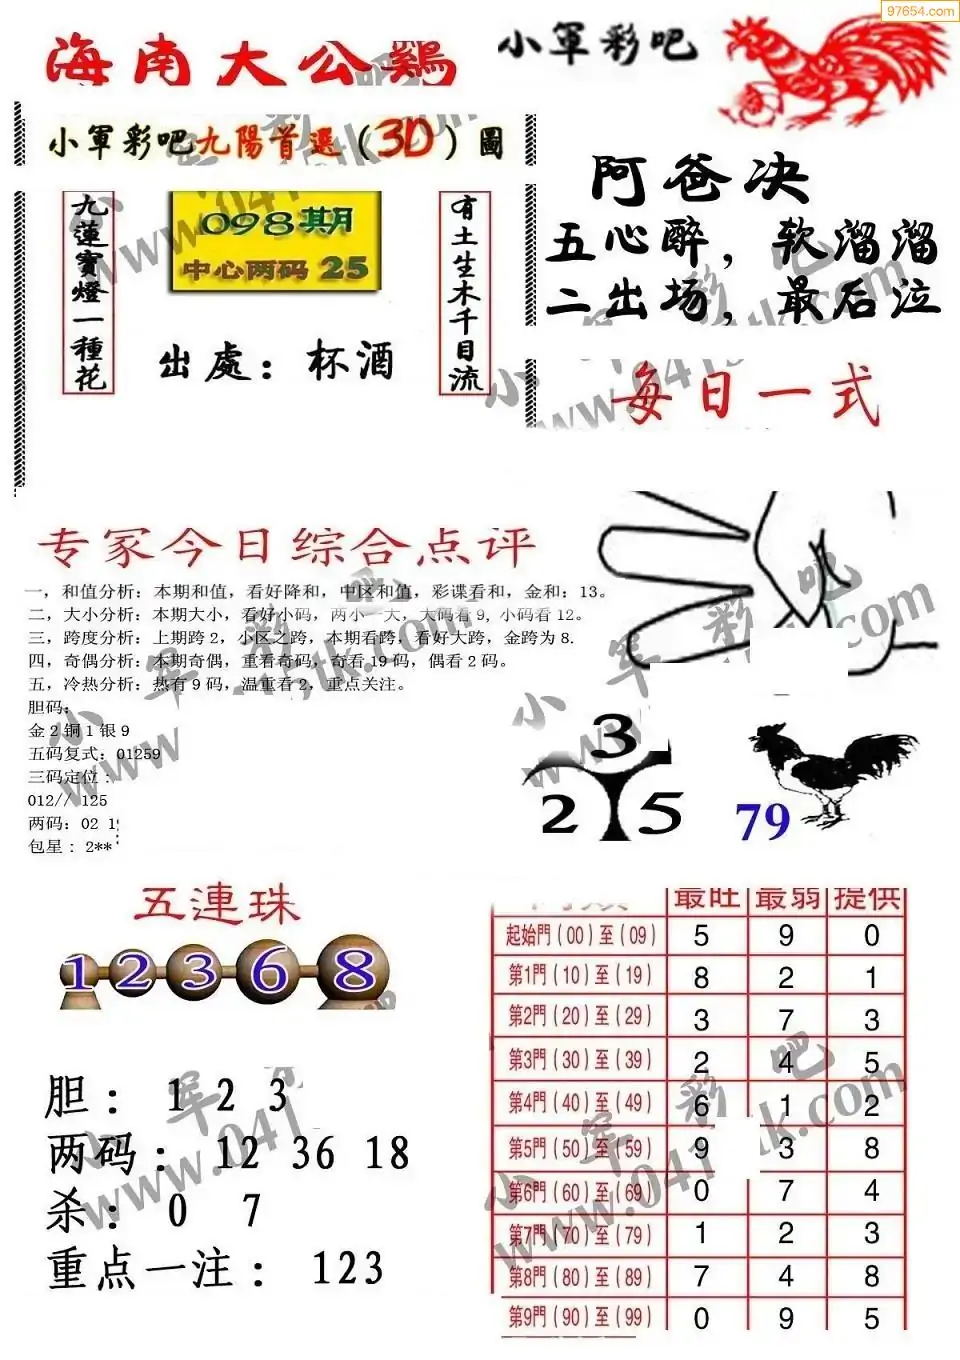 97654.com
海南大公鷄
小軍彩吧
小軍彩吧九陽首選（3D）圖
九蓮寳燈一種花
098期
中心两码 25
有土生木千目流
出處：杯酒
阿爸决
五心醉，软溜溜
二出场，最后泣
每日一式
专家今日综合点评
一，和值分析：本期和值，看好降和，中区和值，彩谍看和，金和：13。
二，大小分析：本期大小，看好小码，两小一大，大码看 9, 小码看 12。
三，跨度分析：上期跨 2，小区之跨，本期看跨，看好大跨，金跨为 8.
四，奇偶分析：本期奇偶，重看奇码，奇看 19 码，偶看 2 码。
五，冷热分析：热有 9 码，温重看 2，重点关注。
胆码：
金 2 铜 1 银 9
五码复式：01259
三码定位：
012// 125
两码：02
包星：2**
3
2 5
79
五連珠
1 2 3 6 8
胆： 1 2 3
两码： 12 36 18
杀： 0 7
重点一注： 123
最旺 最弱 提供
起始門（00）至（09） 5 9 0
第1門（10）至（19） 8 2 1
第2門（20）至（29） 3 7 3
第3門（30）至（39） 2 4 5
第4門（40）至（49） 6 1 2
第5門（50）至（59） 9 3 8
第6門（60）至（69） 0 7 4
第7門（70）至（79） 1 2 3
第8門（80）至（89） 7 4 8
第9門（90）至（99） 0 9 5